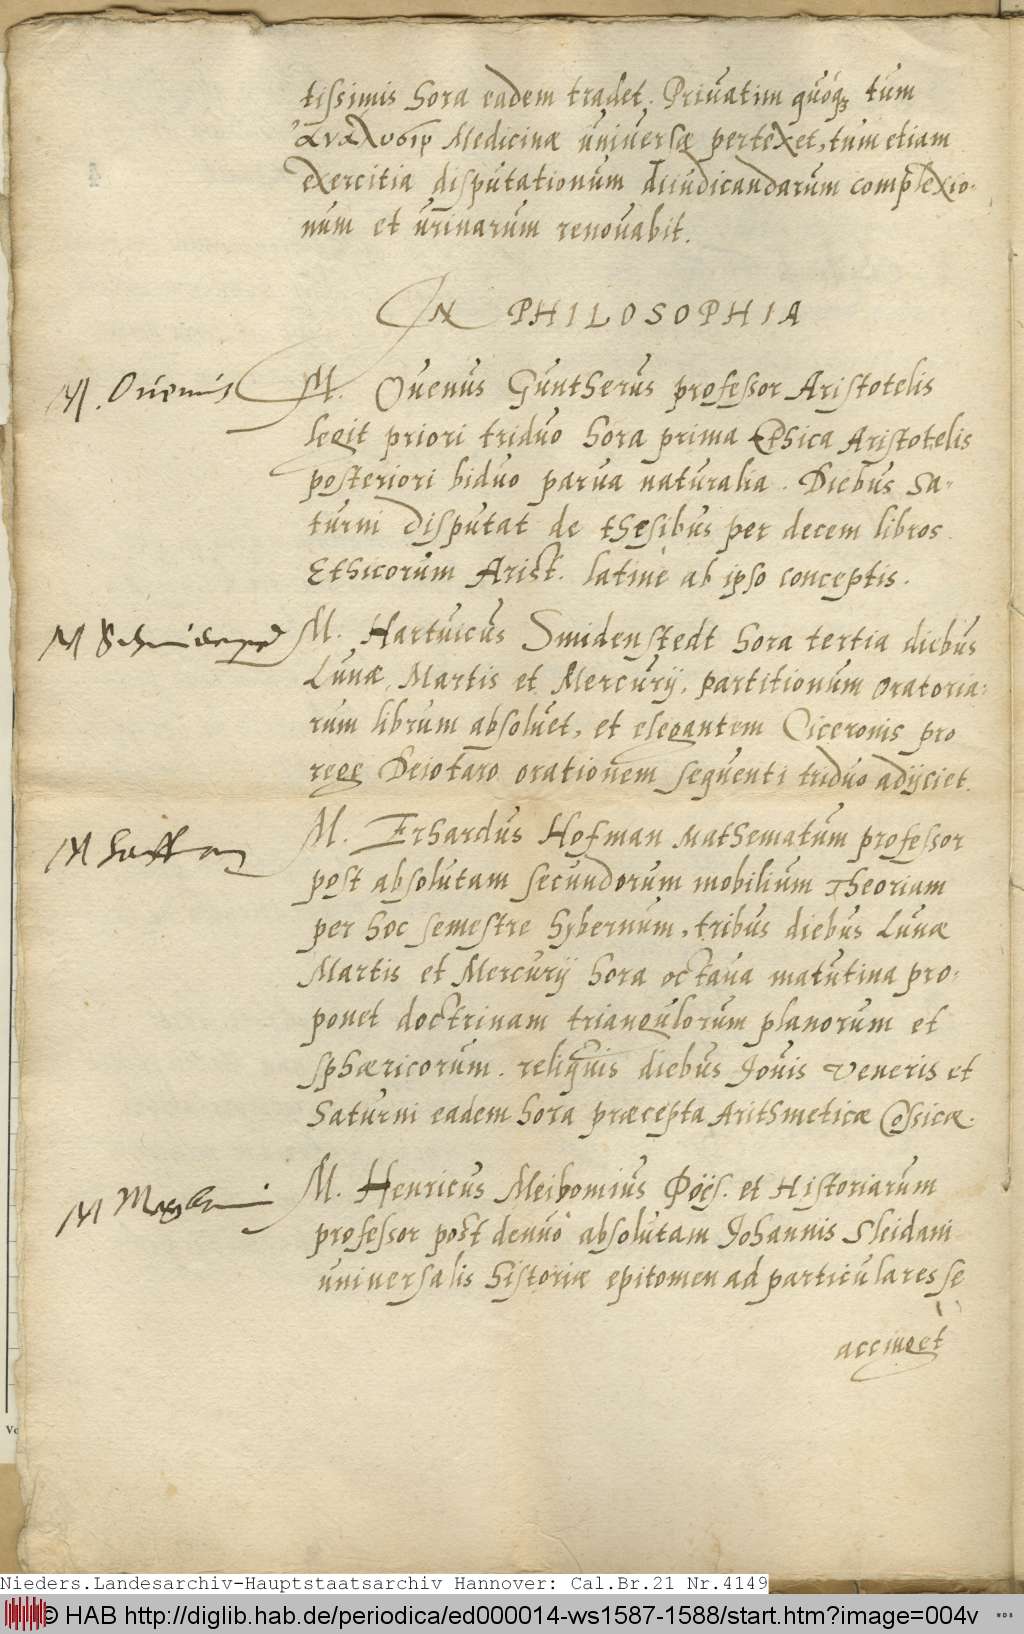 tissimis hora eadem tradet. Privatim quoq3 tum
ἀνάλυσιν Medicinæ universæ pertexet, tum etiam
exercitia disputationum diiudicandarum complexio-
num et urinarum renovabit.
IN PHILOSOPHIA
M. Ovenus
M. Ovenus Guntherus professor Aristotelis
legit priori triduo hora prima Ethica Aristotelis
posteriori biduo parva naturalia. Diebus Sa-
turni disputat de thesibus per decem libros
Ethicorum Arist. latinè ab ipso conceptis.
M
M. Hartuicus Smidenstedt hora tertia diebus
Lunæ, Martis et Mercurij, partitionum oratoria-
rum librum absoluet, et elegantem Ciceronis pro
rege Deiotaro orationem sequenti triduo adijciet.
M Hoffman
M. Erhardus Hofman Mathematum professor
post absolutam secundorum mobilium Theoriam
per hoc semestre hybernum, tribus diebus Lunæ
Martis et Mercurij hora octava matutina pro-
ponet doctrinam triangulorum planorum et
sphæricorum. reliquis diebus Jovis Veneris et
Saturni eadem hora præcepta Arithmeticæ Cossicæ.
M
M. Henricus Meibomius Poës. et Historiarum
professor post denuò absolutam Johannis Sleidani
universalis historiæ epitomen ad particulares se
accinget
Nieders.Landesarchiv-Hauptstaatsarchiv Hannover: Cal.Br.21 Nr.4149
© HAB http://diglib.hab.de/periodica/ed000014-ws1587-1588/start.htm?image=004v